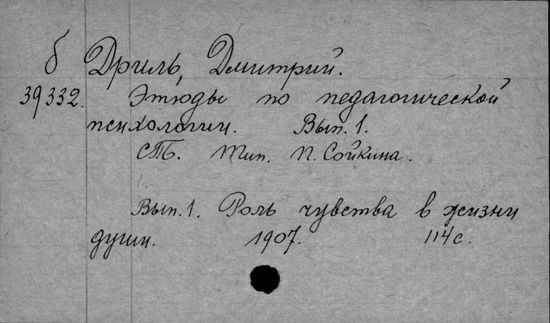 б Дриль, Дмитрий.
39332. Этюды по педагогической
психологии. Вып. 1.
СПб. Тип. П. Сойкина.
Вып. 1. Роль чувства в жизни
души. 1907. 114 с.